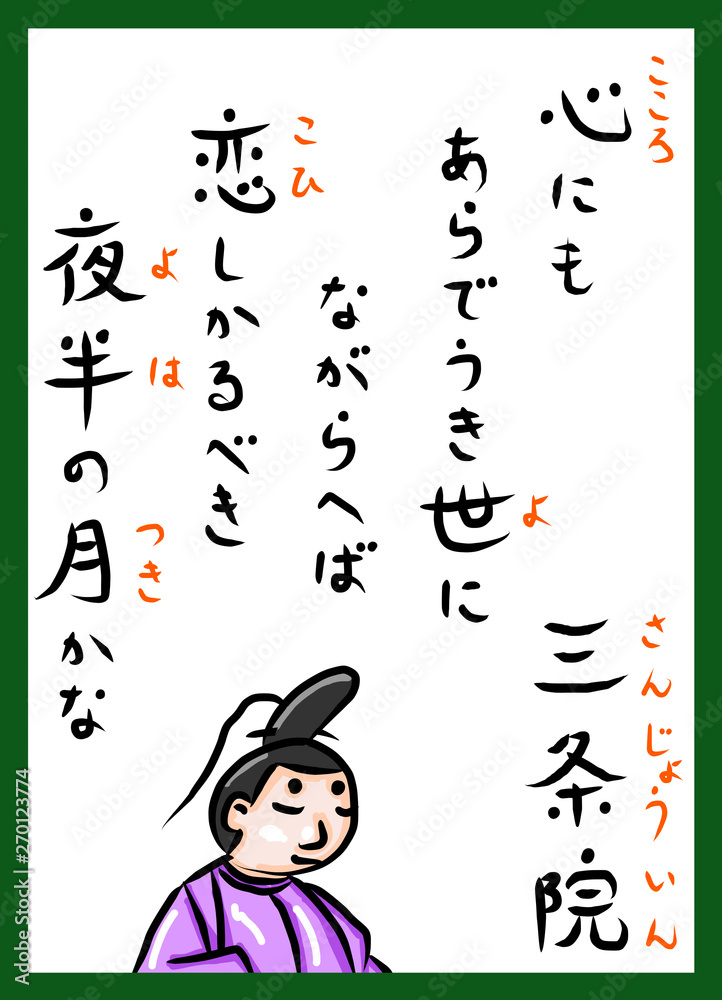 心にも
こころ
三条院
さんじょういん
あらでうき世に
よ
ながらへば
恋しかるべき
こひ
夜半の月かな
よは
つき
Adobe Stock
Adobe Stock | #270123774